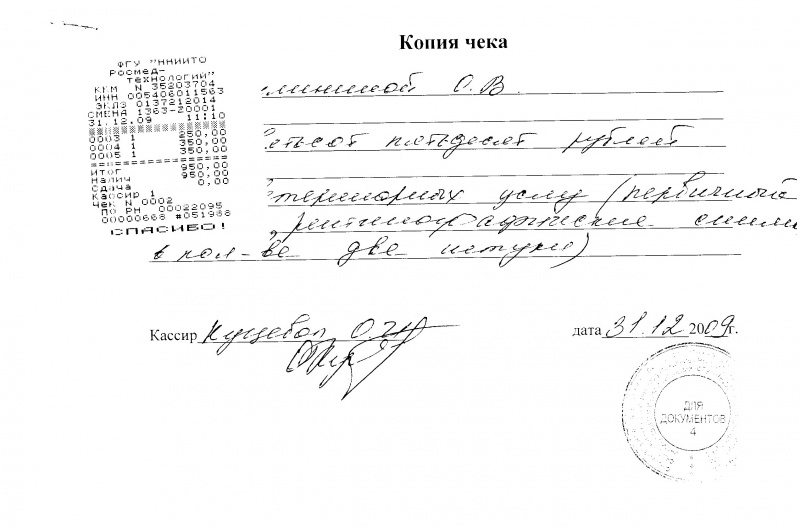 Копия чека
ФГУ "ННИИТО
Росмед-
технологий"
ККМ N 35203704
ИНН 005406011563
ЭКЛЗ 0137212014
СМЕНА 1363-Z0001
31.12.09 11:10
0003 1 250,00
0004 1 350,00
0005 1 350,00
ИТОГ 950,00
Налич 950,00
Сдача 0,00
Кассир 1
Чек N 0002
ПО РН 00022095
00000668 #051988
СПАСИБО!
О.В
пятьдесят рублей
услуг (первичный
снимки
в кол-ве две штуки)
Кассир О.
дата 31.12 2009г.
ДЛЯ
ДОКУМЕНТОВ
4